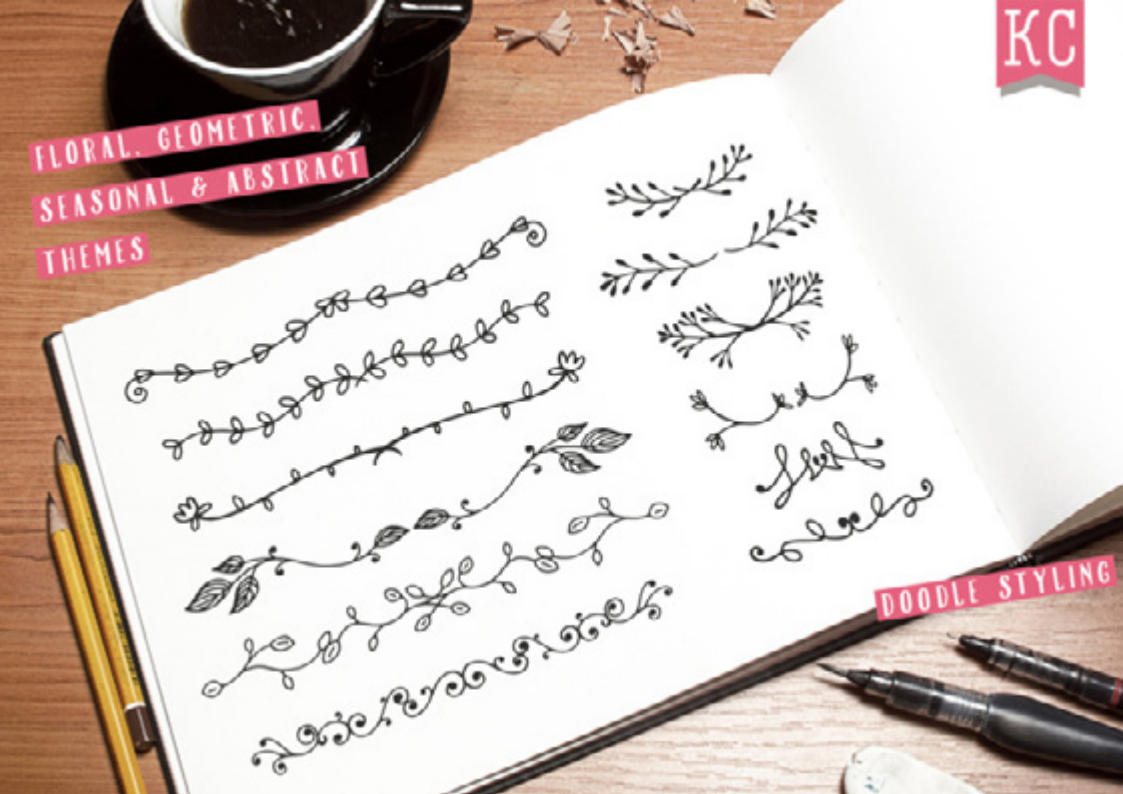 KC
FLORAL, GEOMETRIC,
SEASONAL & ABSTRACT
THEMES
DOODLE STYLING